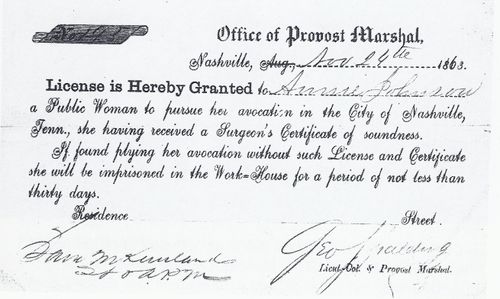 Office of Provost Marshal,
Nashville, Aug, Nov 24th 1863.
License is Hereby Granted to Annie Johnson
a Public Woman to pursue her avocation in the City of Nashville,
Tenn., she having received a Surgeon's Certificate of soundness.
If found plying her avocation without such License and Certificate
she will be imprisoned in the Work=House for a period of not less than
thirty days.
Residence Street.
Geo Spalding
Lieut-Col. & Provost Marshal.